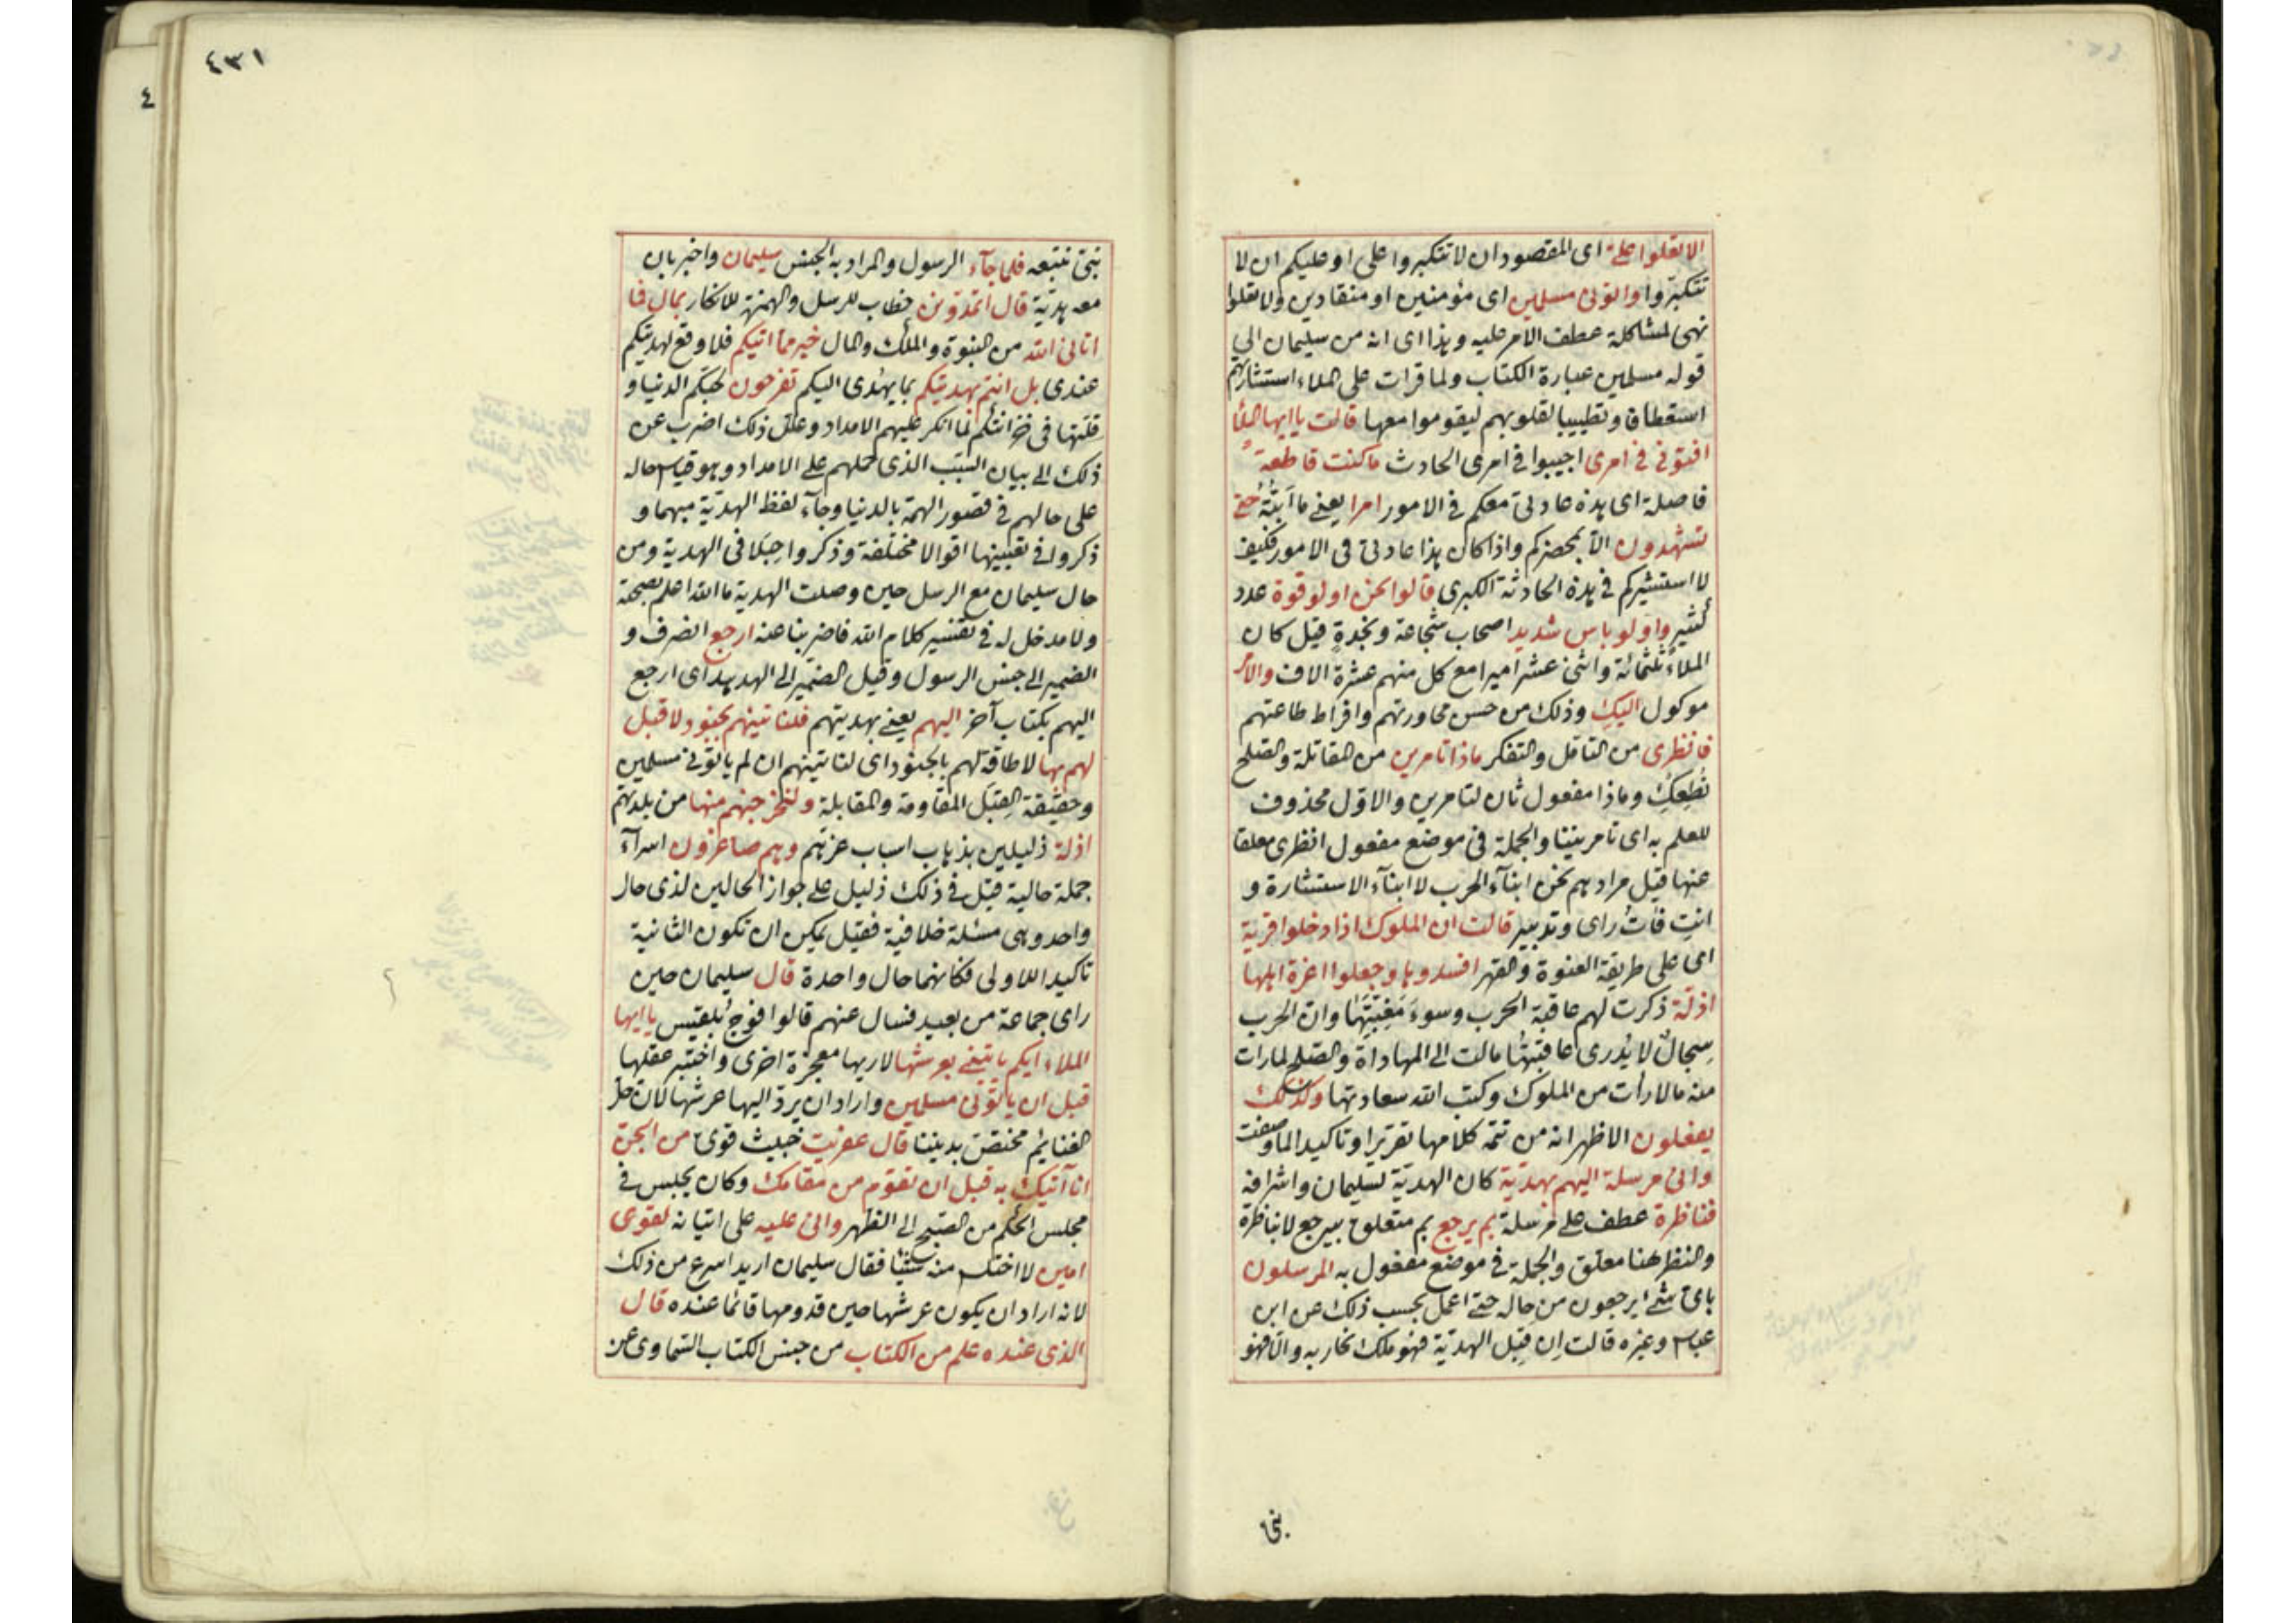 الا تعلوا على اى المقصود ان لا تتكبروا على او عليكم ان لا
تتكبروا واتونى مسلمين اى مؤمنين او منقادين ولا تعلوا
نهى لمشاكلة عطف الامر عليه وهذا اى انه من سليمان الى
قوله مسلمين عبارة الكتاب ولما قرات على الملاء استشارتهم
استعطافا وتطييبا لقلوبهم ليقوموا معها قالت يا ايها الملأ
افتونى فى امرى اجيبوا فى امرى الحادث ما كنت قاطعة
فاصلة اى هذه عادتى معكم فى الامور امرا يعنى ما ابته حتى
تشهدون الا بمحضركم واذا كان هذا عادتى فى الامور فكيف
لا استشيركم فى هذه الحادثة الكبرى قالوا نحن اولو قوة عدد
كثير واولو باس شديد اصحاب شجاعة ونجدة قيل كان
الملاء ثلثمائة واثنى عشر اميرا مع كل منهم عشرة الاف والامر
موكول اليك وذلك من حسن محاورتهم وافراط طاعتهم
فانظرى من التامل والتفكر ماذا تامرين من المقاتلة والصلح
نطعك وماذا مفعول ثان لتامرين والاول محذوف
للعلم به اى تامريننا والجملة فى موضع مفعول انظرى معلقا
عنها قيل مرادهم نحن ابناء الحرب لا ابناء الاستشارة و
انت رأى وتدبير قالت ان الملوك اذا دخلوا قرية
اى على طريقة العنوة والقهر افسدوها وجعلوا اعزة اهلها
اذلة ذكرت لهم عاقبة الحرب وسوء مغبتها وان الحرب
سجال لا يدرى عاقبتها مالت الى المهاداة والصلح لما رات
منه ما لا رأت من الملوك وكتب الله سعادتها وكذلك
يفعلون الاظهر انه من تتمة كلامها تقريرا وتاكيدا لما وصفت
وانى مرسلة اليهم بهدية كان الهدية لسليمان واشرافه
فناظرة عطف على مرسلة بم يرجع بم متعلق بيرجع لا بناظرة
والنظر هنا معلق والجملة فى موضع مفعول به المرسلون
باى شئ يرجعون من حاله حتى اعمل بحسب ذلك عن ابن
عباس وغيره قالت ان قبل الهدية فهو ملك نحاربه والا فهو
نبى
٤٣١
٤
نبى نتبعه فلما جاء الرسول والمراد به الجنس سليمان واخبر بان
معه هدية قال اتمدونن خطاب للرسل والهمزة للانكار بمال فما
اتانى الله من النبوة والملك والمال خير مما اتيكم فلا وقع لهديتكم
عندى بل انتم بهديتكم بما يهدى اليكم تفرحون لحبكم الدنيا و
قلتها فى خزائنكم لما انكر عليهم الامداد وعلل ذلك اضرب عن
ذلك الى بيان السبب الذى حملهم على الامداد وهو قياس حاله
على حالهم فى قصور الهمة بالدنيا وجاء لفظ الهدية مبهما و
ذكروا فى تعيينها اقوالا مختلفة وذكروا حيلا فى الهدية ومن
حال سليمان مع الرسل حين وصلت الهدية ما الله اعلم بصحته
ولا مدخل له فى تفسير كلام الله فاضربنا عنه ارجع انصرف و
الضمير الى جنس الرسول وقيل الضمير الى الهدهد اى ارجع
اليهم بكتاب آخر اليهم يعنى بهديتهم فلنأتينهم بجنود لا قبل
لهم بها لا طاقة لهم بالجنود اى لنأتينهم ان لم ياتونى مسلمين
وحقيقة القبل المقاومة والمقابلة ولنخرجنهم منها من بلدتهم
اذلة ذليلين بذهاب اسباب عزتهم وهم صاغرون اسرآء
جملة حالية قيل فى ذلك دليل على جواز الحالين لذى حال
واحد وهى مسئلة خلافية فقيل يمكن ان تكون الثانية
تاكيدا للاولى فكانهما حال واحدة قال سليمان حين
راى جماعة من بعيد فسال عنهم قالوا فوج بلقيس يا ايها
الملاء ايكم ياتينى بعرشها لاريها معجزة اخرى واختبر عقلها
قبل ان ياتونى مسلمين واراد ان يرد اليها عرشها لان حل
الغنايم مختص بديننا قال عفريت خبيث قوى من الجن
انا آتيك به قبل ان تقوم من مقامك وكان يجلس فى
مجلس الحكم من الصبح الى الظهر وانى عليه على اتيانه لقوى
امين لا اختلس منه شيئا فقال سليمان اريد اسرع من ذلك
لانه اراد ان يكون عرشها حين قدومها قائما عنده قال
الذى عنده علم من الكتاب من جنس الكتاب السماوى عن